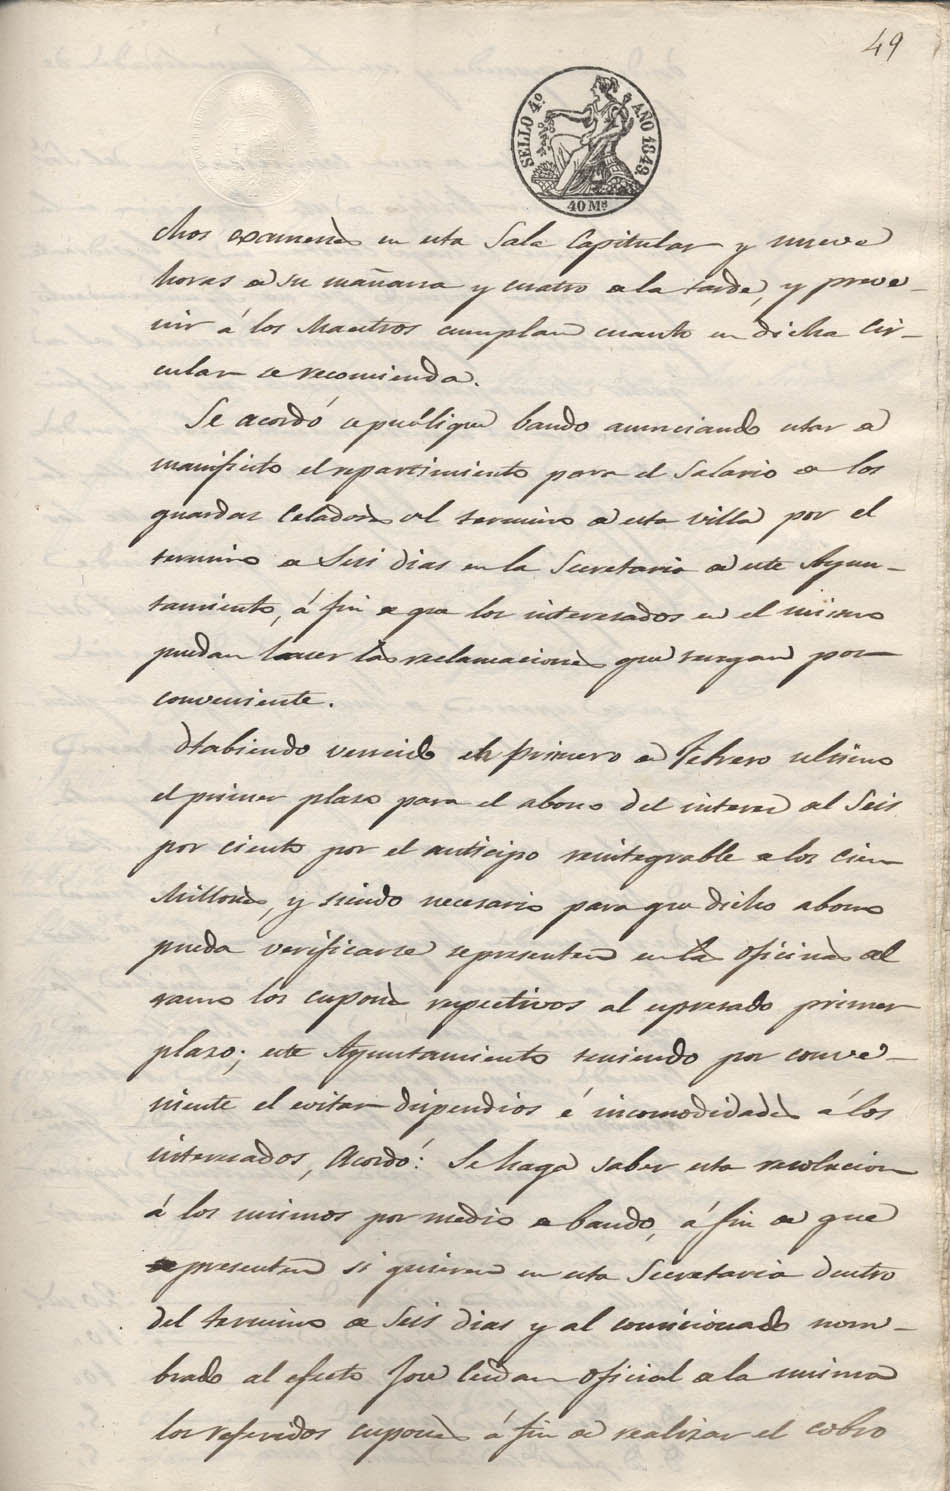 49
SELLO 4º. AÑO 1849.
40 Ms.
chos examenes en esta Sala Capitular y nueve
horas de su mañana y cuatro de la tarde, y preve-
nir á los Maestros cumplan cuanto en dicha Cir-
cular se recomienda.
Se acordó se publique bando anunciando estar de
manifiesto el repartimiento para el Salario de los
guardas Celadores del termino de esta villa por el
termino de Seis dias en la Secretaria de este Ayun-
tamiento, á fin de que los interesados en el mismo
puedan hacer las reclamaciones que tengan por
conveniente.
Habiendo vencido en primero de Febrero ultimo
el primer plazo para el abono del interes del Seis
por ciento por el anticipo reintegrable de los cien
Millones, y siendo necesario para que dicho abono
pueda verificarse se presenten en las oficinas del
ramo los cupones respectivos al espresado primer
plazo; este Ayuntamiento teniendo por conve-
niente el evitar dispendios é incomodidades á los
interesados, Acordó: Se haga saber esta resolucion
á los mismos por medio de bando, á fin de que
se presenten si quieren en esta Secretaria dentro
del termino de Seis dias y al comisionado nom-
brado al efecto José oficial de la misma
los referidos cupones á fin de realizar el cobro